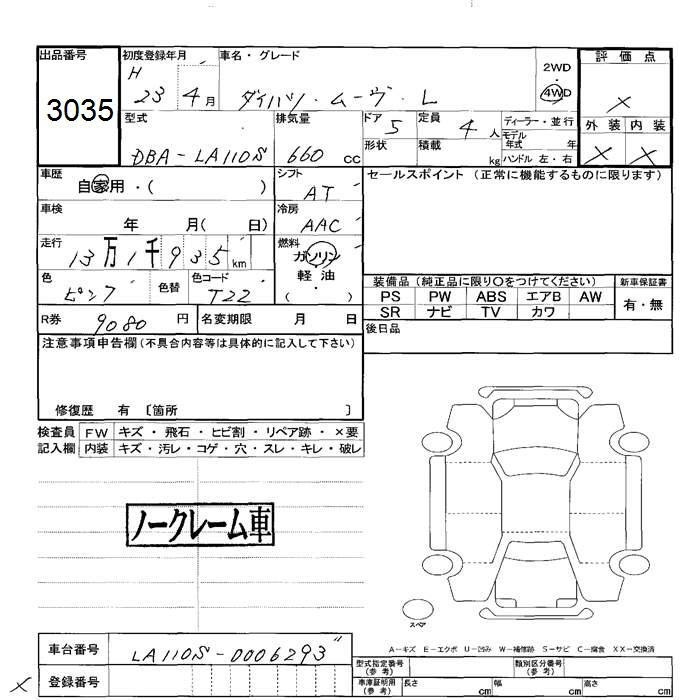 出品番号 3035
初度登録年月 H 23 4月
車名・グレード ダイハツ・ムーヴ・L
2WD・4WD
評価点 X
外装 X 内装 X
型式 DBA-LA110S
排気量 660 cc
ドア 5 定員 4 人
形状 積載 kg
ディーラー・並行
モデル年式 年
ハンドル 左・右
車歴 自家用・( )
シフト AT
セールスポイント (正常に機能するものに限ります)
車検 年 月( 日)
冷房 AAC
走行 13万1千935km
燃料 ガソリン 軽油 ( )
色 ピンク 色替 色コード T22
装備品 (純正品に限り〇をつけてください)
新車保証書 有・無
PS PW ABS エアB AW
SR ナビ TV カワ
R券 9080 円 名変期限 月 日
後日品
注意事項申告欄 (不具合内容等は具体的に記入して下さい)
修復歴 有 〔箇所 〕
検査員記入欄
FW キズ・飛石・ヒビ割・リペア跡・×要
内装 キズ・汚レ・コゲ・穴・スレ・キレ・破レ
ノークレーム車
スペア
A-キズ E-エクボ U-凹み W-補修跡 S-サビ C-腐食 XX-交換済
車台番号 LA110S-0006293"
X 登録番号
型式指定番号(参考) 類別区分番号(参考)
車庫証明用(参考) 長さ cm 幅 cm 高さ cm